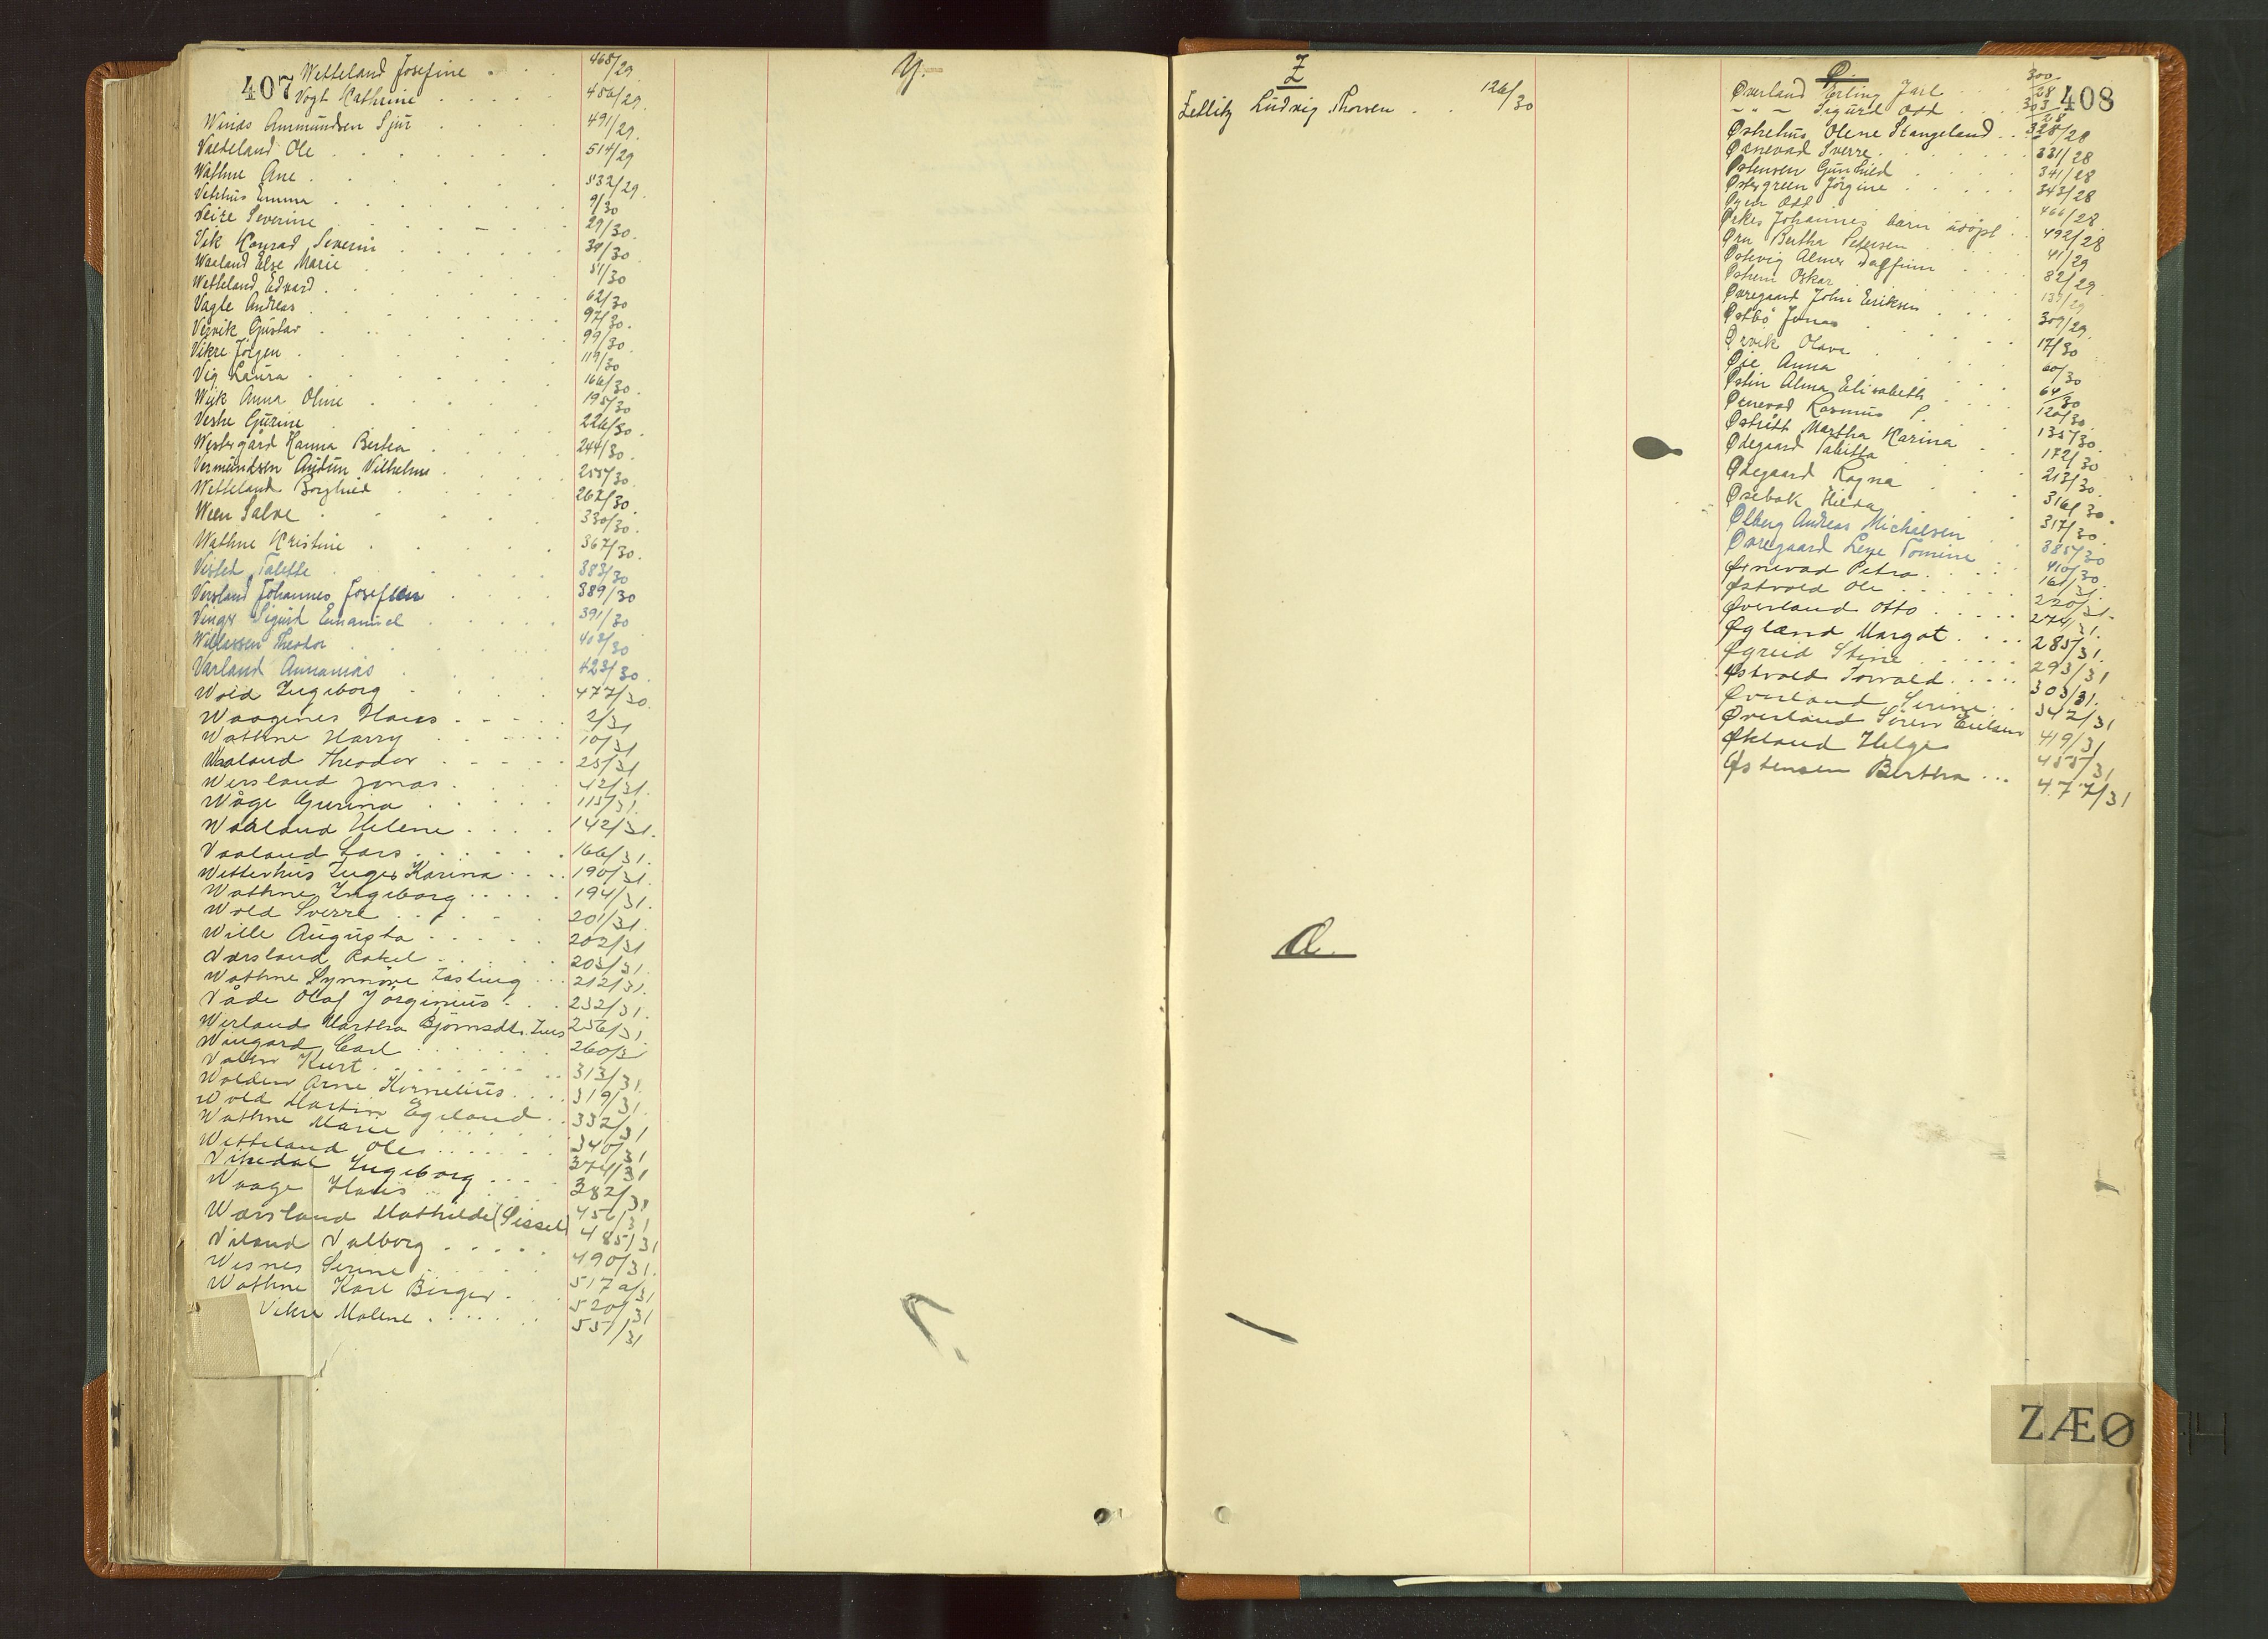 407
Wetteland Josefine . . . 468/29
Vogt Kathrine . . . . . 486/29.
Winds Ammundsen Sjur . . . 491/29.
Vaedeland Ole . . . . . . 514/29
Wathne Ane . . . . . . 532/29.
Vethus Emma . . . . . . 9/30
Veire Severine . . . . 29/30.
Vik Konrad Severin . . . . 39/30
Waaland Else Marie . . . . 51/30
Wetteland Edvard . . . . . . 62/30
Vagle Andreas . . . . . . 97/30.
Vervik Gustav . . . . . . 99/30.
Vikre Jörgen . . . . . . 119/30
Vig Laura . . . . . . 166/30.
Wiik Anna Oline . . . . . 195/30
Veshe Gurine . . . . . 226/30.
Westergård Hanna Bertea . . . . 244/30.
Vermundsen Audun Vilhelm . . . 255/30.
Wetteland Borghild . . . . 262/30.
Ween Salve . . . . . 330/30.
Wathne Kristine . . . . . 367/30.
Visted Talette . . . . . 383/30
Versland Johannes Josefsen . . . . 389/30
Vinge Sigurd Emanuel . . . . 391/30
Willassen Theodor . . . . . 403/30
Varland Annanias . . . . 423/30.
Wold Ingeborg . . . . 477/30.
Waagenes Hans . . . . . 2/31
Wathne Harry . . . . . 10/31
Waaland Theodor . . . . . 25/31
Wersland Jonas . . . . . 42/31.
Wåge Gurina . . . . . 115/31.
Waaland Helene . . . . 142/31.
Vaaland Lars . . . . . . 166/31.
Wetterhus Inger Karina . . . . 190/31.
Wathne Ingeborg . . . . . 194/31.
Wold Sverre . . . . . 201/31.
Wille Augusta . . . . . 202/31
Værsland Rakel . . . . . 205/31.
Wathne Synnöve Tasling . . . 212/31.
Våde Olaf Jörginius . . . 232/31.
Werland Martha Björnsdtr. 256/31.
Wingard Carl . . . . . . 260/31
Valen Kurt . . . . . . . 313/31.
Wolden Arne Kornelius . . . . 319/31.
Wold Martin Egeland . . 332/31
Wathne Marie . . . . . . 340/31
Wetteland Ole . . . . . . 374/31
Vikedal Ingeborg . . . . 382/31
Waage Hans . . . . 456/31
Wærsland Mathilde (Sissel) 485/31
Viland Valborg . . . . . 490/31.
Wisnes Serine . . . . . 517a/31
Wathne Karl Birger . . . 520/31
Vikre Malene . . . . . . 551/31
Y.
Z
Zetlitz Ludvig Thorsen . . 126/30
Æ.
Ø.
408
Øverland Erling Jarl . . . 300/28
- " - Sigurd Odd . . . 303/28
Øskehus Olene Stangeland . . 328/28
Ørnevad Sverre . . . . . . 331/28
Østensen Gunhild . . . . 341/28
Østergreen Jörgine . . . . 343/28
Øyen Odd . . . 466/28.
Ørkes Johannes barn adopt. . . 492/28
Ørn Bertha Petersen . . . 41/29
Østevig Almer Dagfinn . . . 82/29.
Østrem Oskar . . . . 139/29
Øvregaard John Eriksen . . . . 309/29.
Østbø Jonas . . . . 17/30
Ørvik Olava . . . . 60/30
Øie Anna . . . . 64/30
Østin Alma Elisabeth . . . . 120/30.
Ørnevad Rasmus P. . . . 135/30.
Østrått Martha Karina . . 172/30
Ødegaard Tabitta . . . 213/30.
Ødegaard Ragna . . . 316/30.
Øsebak Hilda . . . 317/30.
Ølberg Andreas Michalsen . . 385/30
Øvregaard Lene Tomine . . . 410/30.
Ørnevad Petra . . . . . 161/31.
Østvold Ole . . . . . . 220/31.
Øverland Otto . . . . . 274/31.
Øgland Margot . . . . 285/31.
Øgreid Stine . . . . . . 293/31
Østvold Torvald . . . . . 303/31.
Øverland Serine . . 342/31
Øverland Søren Eielsen 419/31
Økland Helge 455/31
Østensen Bertha . . . 477/31
ZÆØ